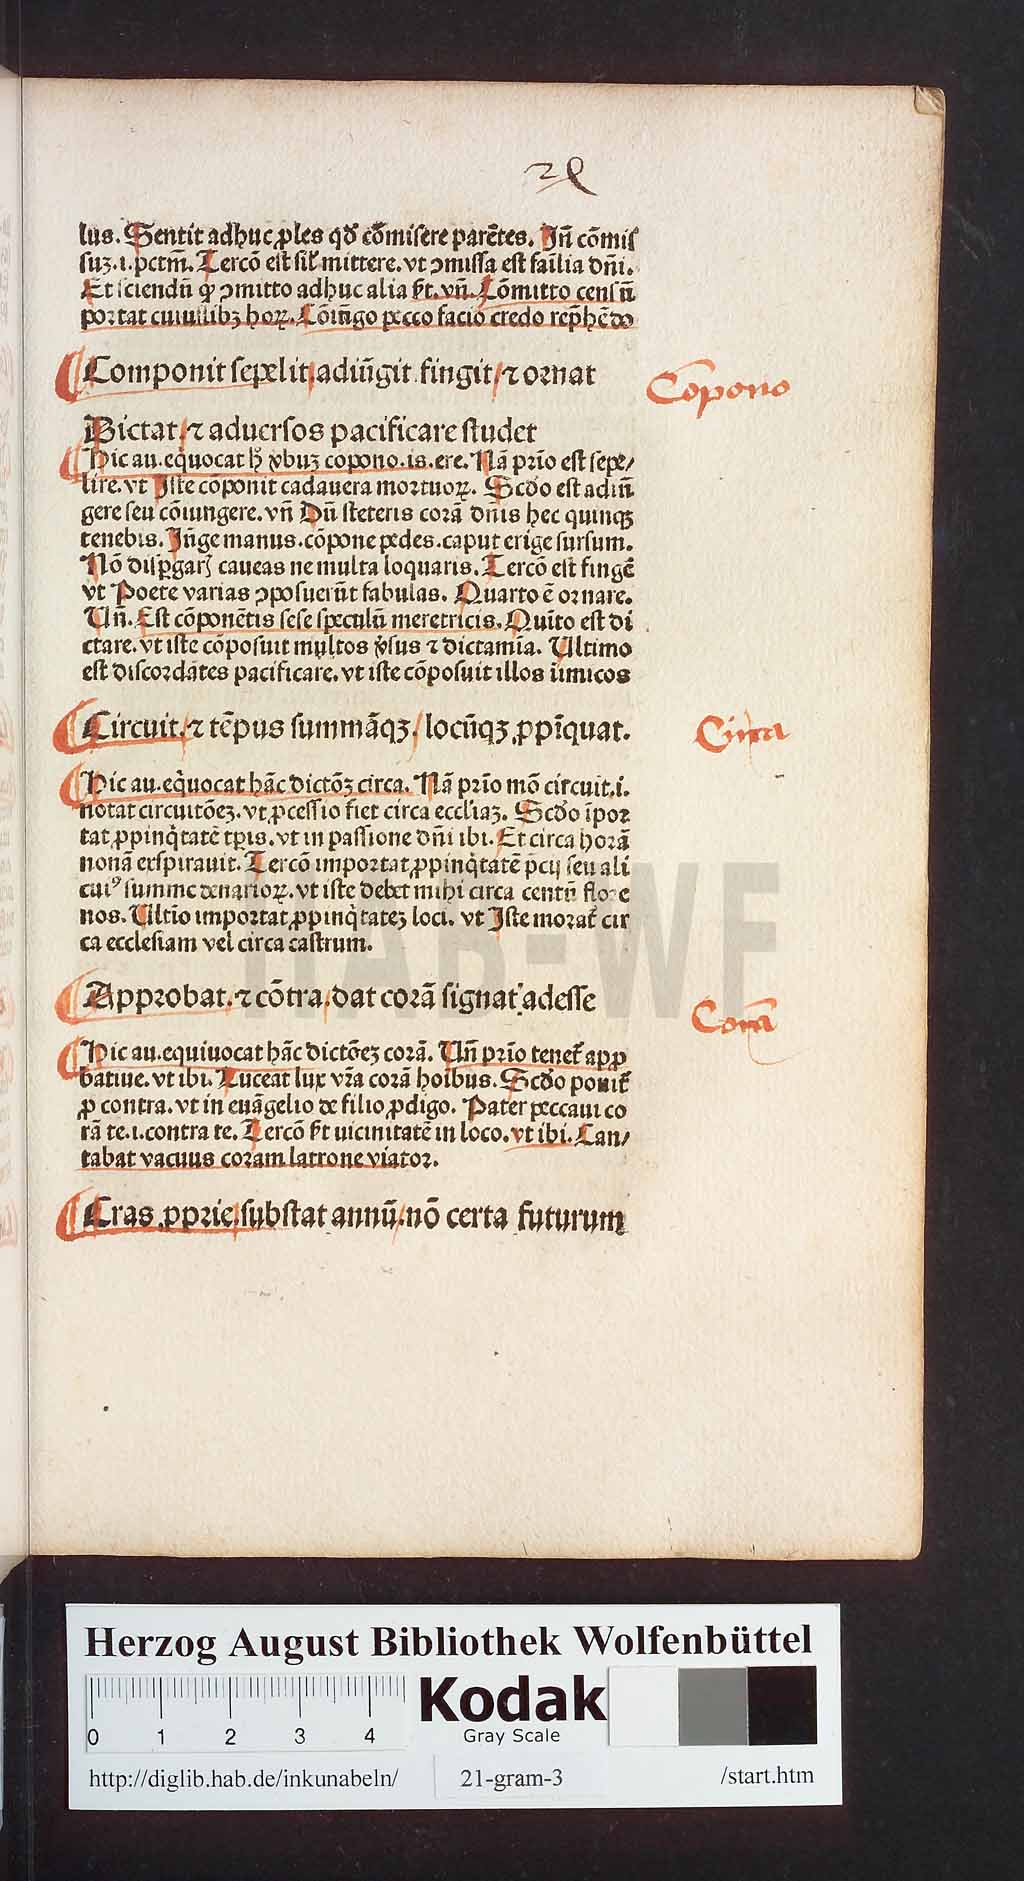 lus. Sentit adhuc ꝓles qđ cōmisere parētes. Iñ cōmiſ
ſuꝫ.i.pctm̄. Tercō eſt ſil' mittere. vt ɔmiſſa eſt fail̄ia dn̄i.
Et ſciendū ꝙ ɔmitto adhuc alia ſꝛt. vn̄. Cōmitto cenſū
portat cuiuſlibꝫ hoꝝ. Cōiūgo pecco facio credo rep̄hēdo
Componit ſepelit, adiūgit fingit, ⁊ ornat
Copono
Dictat, ⁊ aduerſos pacificare ſtudet
Hic au. equocat h̄ v̓buꝫ copono.is.ere. Nā prīo eſt ſepe/
lire. vt Iſte cōponit cadauera mortuoꝝ. Scd̄o eſt adiū
gere ſeu cōiungere. vn̄ Dū ſteteris corā dn̄is hec quinqꝫ
tenebis. Iūge manus. cōpone pedes. caput erige ſurſum.
Nō diſp̄gar caueas ne multa loquaris. Tercō eſt fingē
vt Poete varias ɔpoſuerūt fabulas. Quarto ē ornare.
Un̄. Eſt cōponētis ſeſe ſpeculū meretricis. Quīto eſt di
ctare. vt iſte cōpoſuit multos v̓ſus ⁊ dictamīa. Ultimo
eſt diſcordātes pacificare. vt iſte cōpoſuit illos inimicos
Circuit, ⁊ tēpus ſummāqꝫ, locūqꝫ ꝓpīquat.
Circa
Hic au. equocat hāc dictōꝫ circa. Nā prīo mō circuit.i.
notat circuitōeꝫ. vt ꝓceſſio fiet circa eccl'iaꝫ. Scd̄o īpor
tat ꝓpinq̇tatē tp̄is. vt in paſſione dn̄i ibi. Et circa horā
nonā exſpirauit. Tercō importat ꝓpinq̇tatē p̄cij ſeu ali
cuiꝰ ſumme denarioꝝ. vt iſte debet mihi circa centū flore
nos. Ultīo importat ꝓpinq̇tateꝫ loci. vt Iſte morat᷑ cir
ca eccleſiam vel circa caſtrum.
Approbat, ⁊ cōtra, dat corā ſignat adeſſe
Corā
Hic au. equiuocat hāc dictōeꝫ corā. Un̄ prīo tenet᷑ app̄
batiue. vt ibi. Luceat lux vr̄a corā hoībus. Scd̄o ponit᷑
ꝓ contra. vt in euāgelio de filio ꝓdigo. Pater peccaui co
rā te.i.contra te. Tercō ſꝛt uicinitatē in loco. vt ibi. Can/
tabat vacuus coram latrone viator.
Cras ꝓprie, ſubſtat annū, nō certa futurum
HAB-WF
Herzog August Bibliothek Wolfenbüttel
Kodak
Gray Scale
0 1 2 3 4
http://diglib.hab.de/inkunabeln/ 21-gram-3 /start.htm